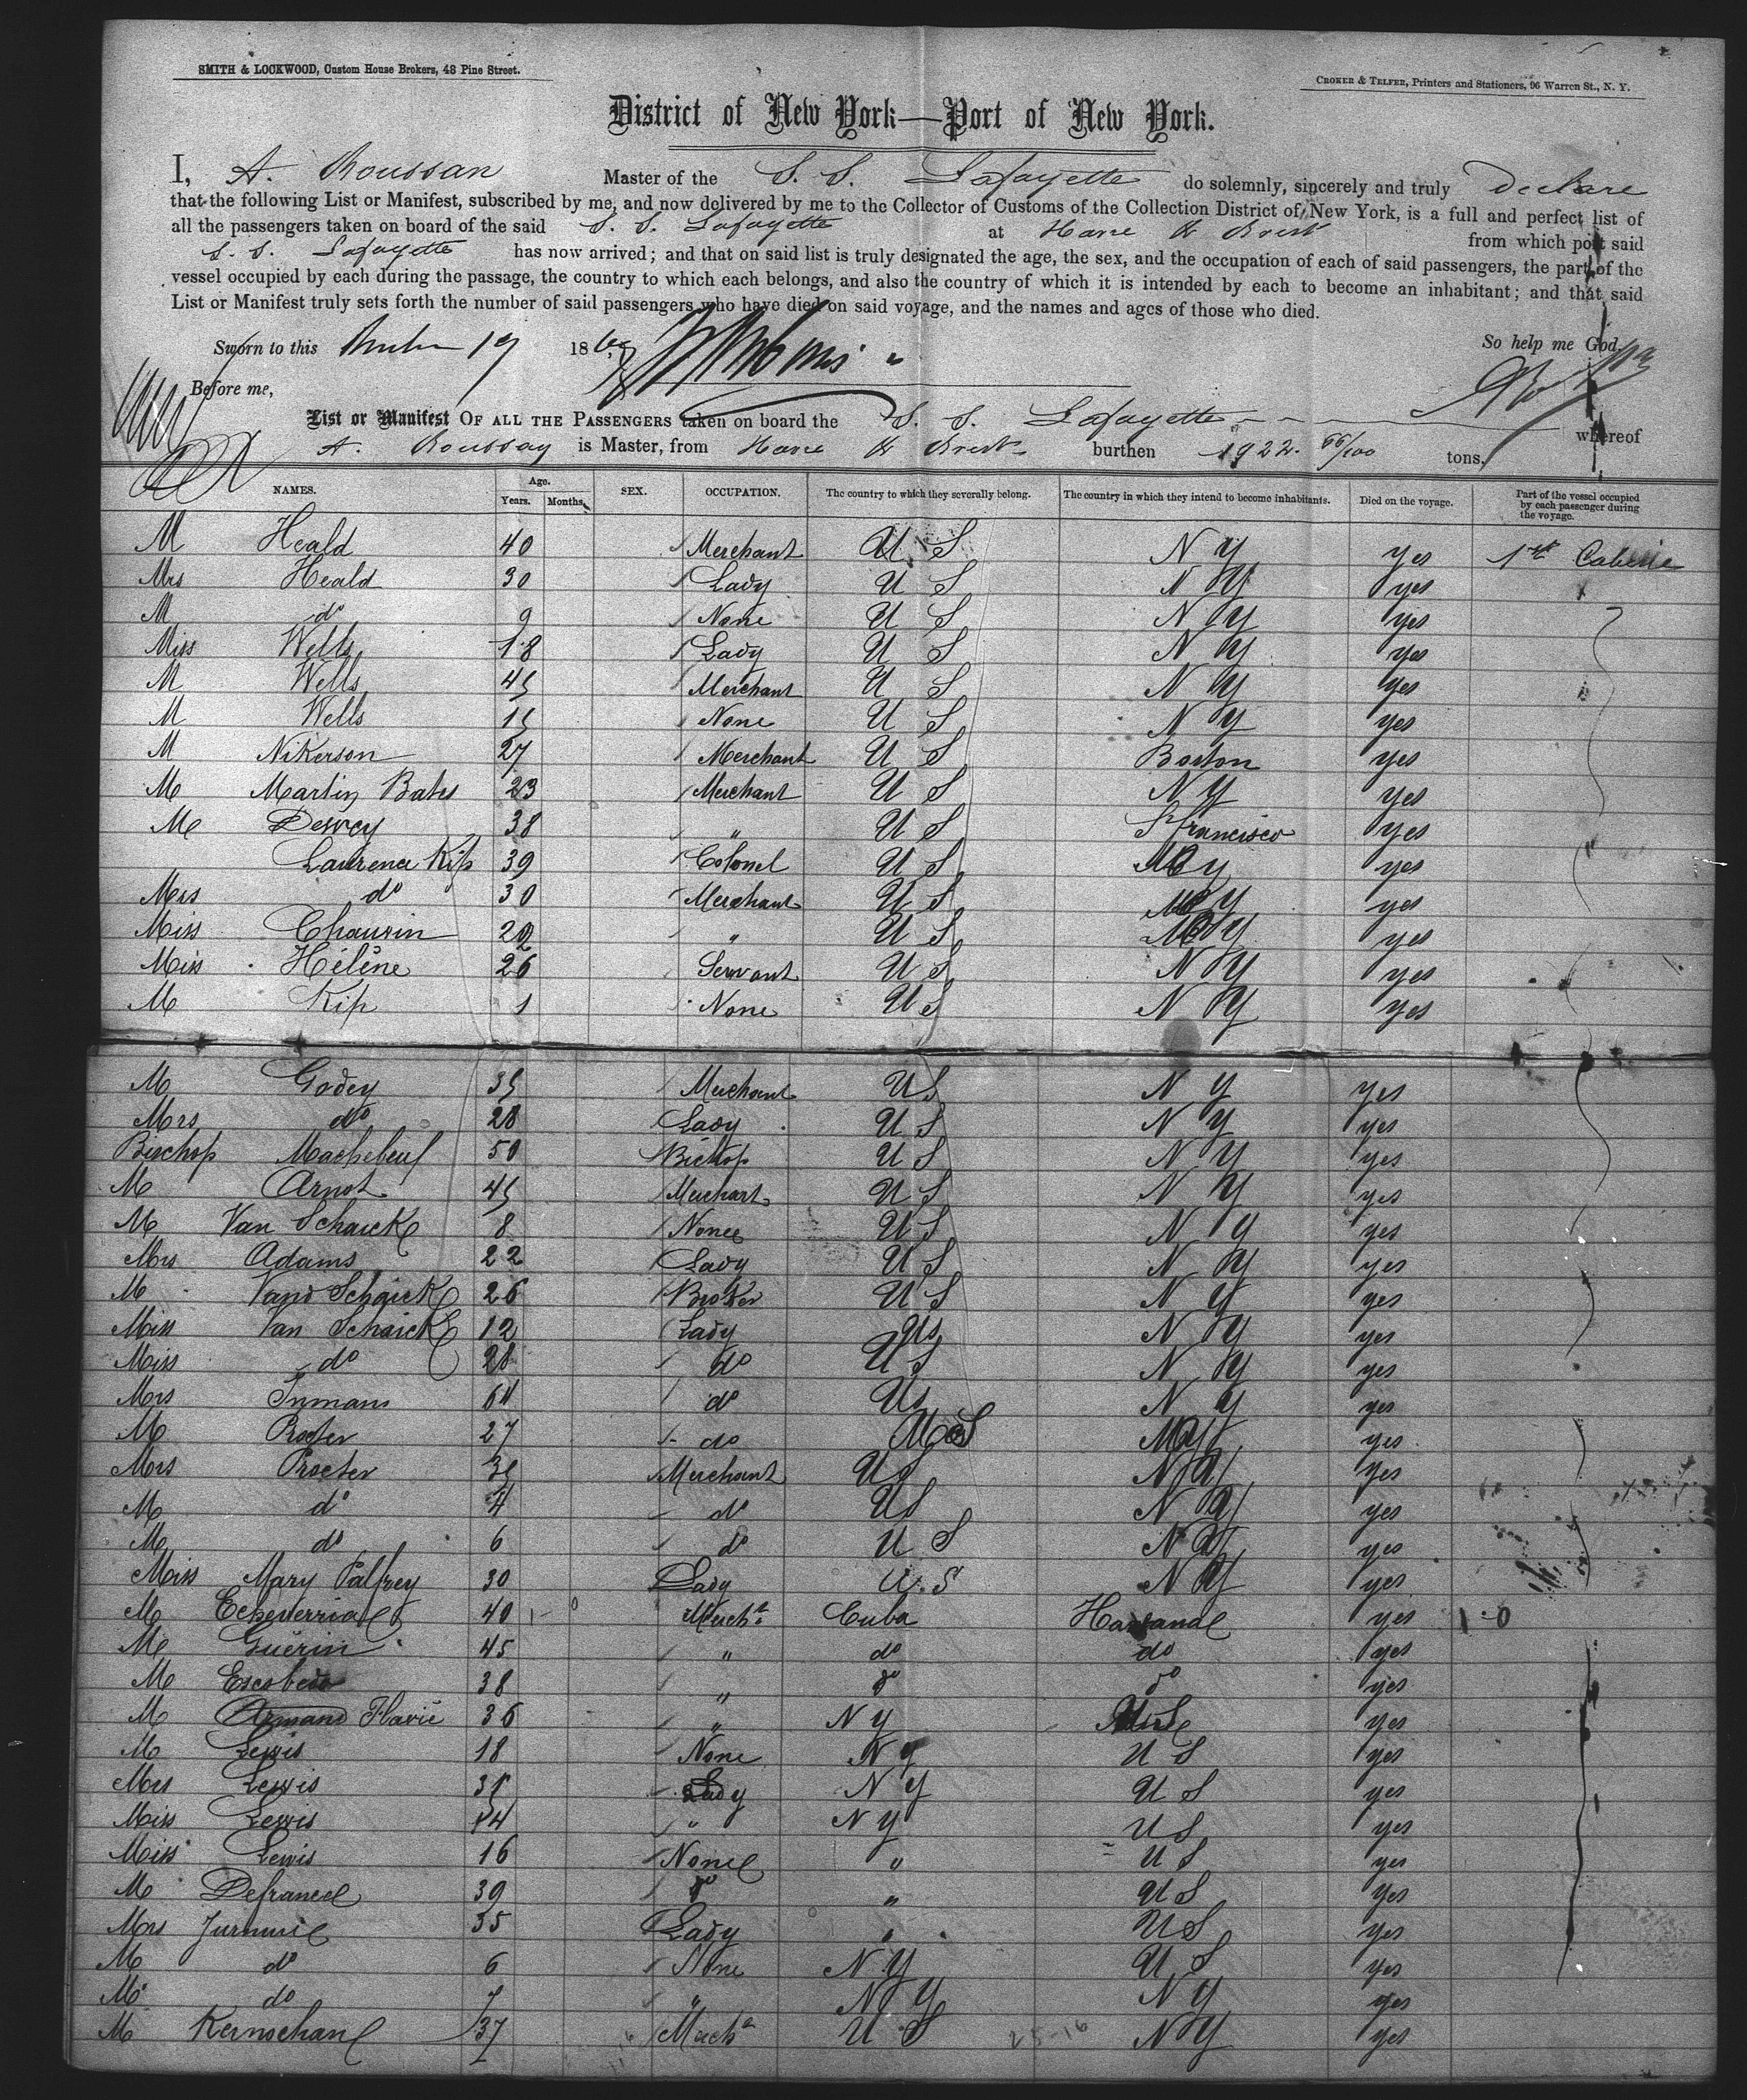 SMITH & LOCKWOOD, Custom House Brokers, 48 Pine Street.
CROKER & TELFER, Printers and Stationers, 96 Warren St., N. Y.
District of New York—Port of New York.
I, A. Roussan Master of the S. S. Lafayette do solemnly, sincerely and truly declare
that the following List or Manifest, subscribed by me, and now delivered by me to the Collector of Customs of the Collection District of New York, is a full and perfect list of
all the passengers taken on board of the said S. S. Lafayette at Havre & Brest from which port said
S. S. Lafayette has now arrived; and that on said list is truly designated the age, the sex, and the occupation of each of said passengers, the part of the
vessel occupied by each during the passage, the country to which each belongs, and also the country of which it is intended by each to become an inhabitant; and that said
List or Manifest truly sets forth the number of said passengers who have died on said voyage, and the names and ages of those who died.
Sworn to this 19 186 So help me God.
Before me,
List or Manifest OF ALL THE PASSENGERS taken on board the S. S. Lafayette whereof
A. Roussay is Master, from Havre & Brest burthen 1922. 66/100 tons.
NAMES. Age. Years. Months. SEX. OCCUPATION. The country to which they severally belong. The country in which they intend to become inhabitants. Died on the voyage. Part of the vessel occupied by each passenger during the voyage.
M Heald 40 Merchant U S N Y yes 1st Cabine
Mrs Heald 30 Lady U S N Y yes
M do 9 None U S N Y yes
Miss Wells 18 Lady U S N Y yes
M Wells 45 Merchant U S N Y yes
M Wells 15 None U S N Y yes
M Nikerson 27 Merchant U S Boston yes
M Martin Bates 23 Merchant U S N Y yes
M Dewey 38 " U S S francisco yes
Laurence Kip 39 Colonel U S N Y yes
Mrs do 30 Merchant U S N Y yes
Miss Chauvin 29 " U S N Y yes
Miss Hélène 26 Servant U S N Y yes
M Kip 1 None U S N Y yes
M Godey 35 Merchant U S N Y yes
Mrs do 28 Lady U S N Y yes
Bischop Machebeuf 50 Bichop U S N Y yes
M Arnot 45 Merchant U S N Y yes
M Van Schaick 8 None U S N Y yes
Mrs Adams 22 Lady U S N Y yes
M Vans Schaick 26 Broker U S N Y yes
Miss Van Schaick 12 Lady Us N Y yes
Miss do 28 do U S N Y yes
Mrs Inmans 64 do Us N Y yes
M 27 do U S N Y yes
Mrs Procter 35 Merchant Us N Y yes
M do 4 do U S N Y yes
M do 6 do U S N Y yes
Miss Mary Palfrey 30 Lady U. S N Y yes
M Echeverria 40 Mercht Cuba Havana yes
M Guérin 45 " do do yes
M Escobedo 38 " do do yes
M Armand Flavié 36 " N Y yes
M Lewis 18 None N Y U S yes
Mrs Lewis 38 Lady N Y U S yes
Miss Lewis 14 " N Y U S yes
Miss Lewis 16 None " U S yes
M Defrance 39 do " U S yes
Mrs 35 Lady " U S yes
M do 6 None N Y U S yes
M do 7 " N Y N Y yes
M Kernochan 37 Mercht U S 25-16 N Y yes